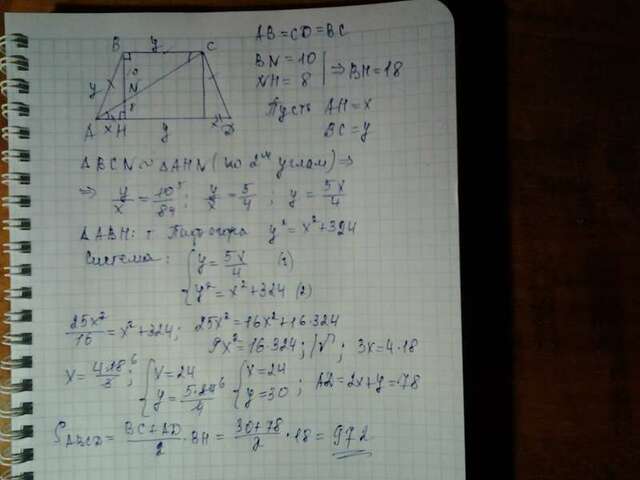 AB=CD=BC
B y C
BN=10
NH=8
⇒ BH=18
y 10 N 8
Пусть AH=x
BC=y
A x H y x D
ΔBCN ~ ΔAHN (по 2ум углам) ⇒
⇒ y/x = 10⁵/8₄ ; y/x = 5/4 ; y = 5x/4
ΔABH: т. Пифагора y² = x² + 324
Система: { y = 5x/4 (1)
y² = x² + 324 (2)
25x²/16 = x² + 324 ; 25x² = 16x² + 16·324
9x² = 16·324 ; /√ ; 3x = 4·18
x = 4·18⁶/3 ; { x = 24 y = 5·24⁶/4 { x = 24 y = 30 ; AD = 2x + y = 78
S ABCD = (BC + AD)/2 · BH = (30 + 78)/2 · 18 = 972